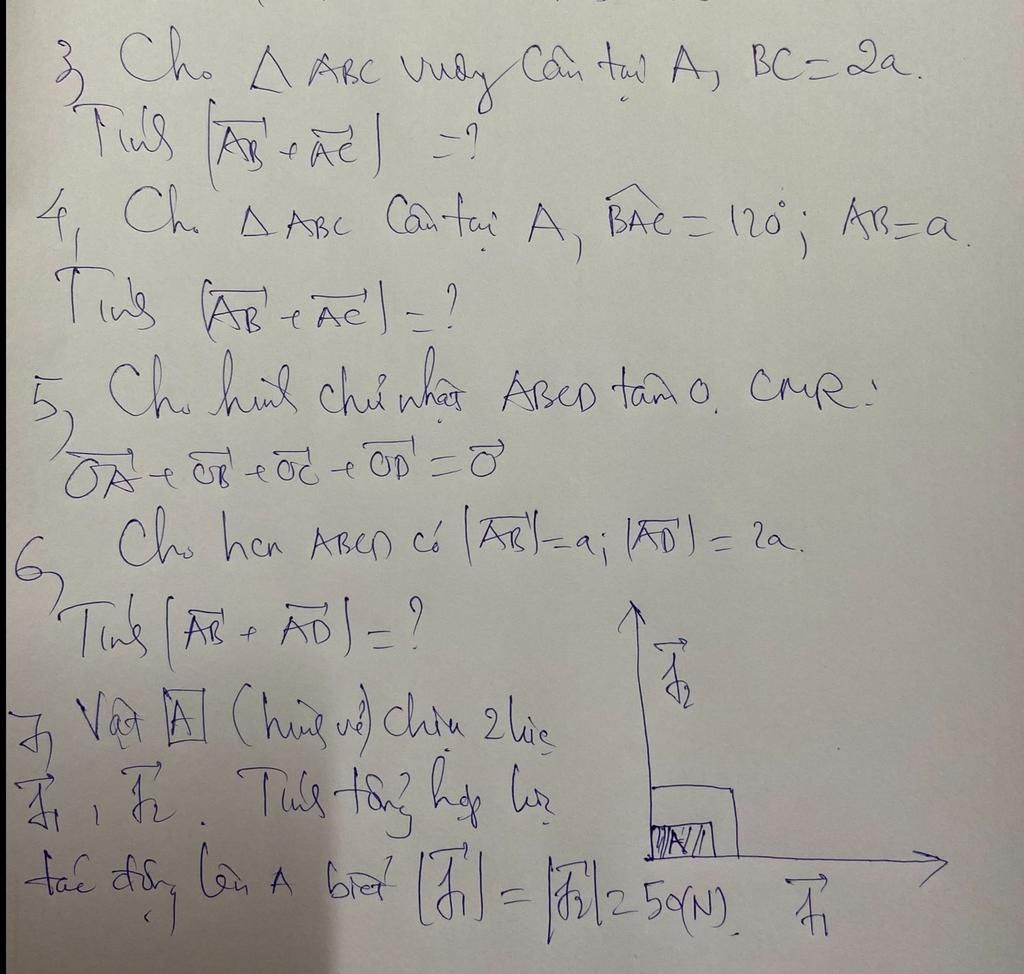 3, Cho Δ ABC vuông cân tại A, BC = 2a.
Tính |AB→ + AC→| = ?
4, Cho Δ ABC Cân tại A, BAC^ = 120°; AB = a.
Tính |AB→ + AC→| = ?
5, Cho hình chữ nhật ABCD tâm O. CMR:
OA→ + OB→ + OC→ + OD→ = O→
6, Cho hcn ABCD có |AB→| = a; |AD→| = 2a.
Tính |AB→ + AD→| = ?
7, Vật A (hình vẽ) chịu 2 lực
f₁→, f₂→. Tính tổng hợp lực
tác động lên A biết |f₁→| = |f₂→| = 50(N).
f₂→
A
f₁→